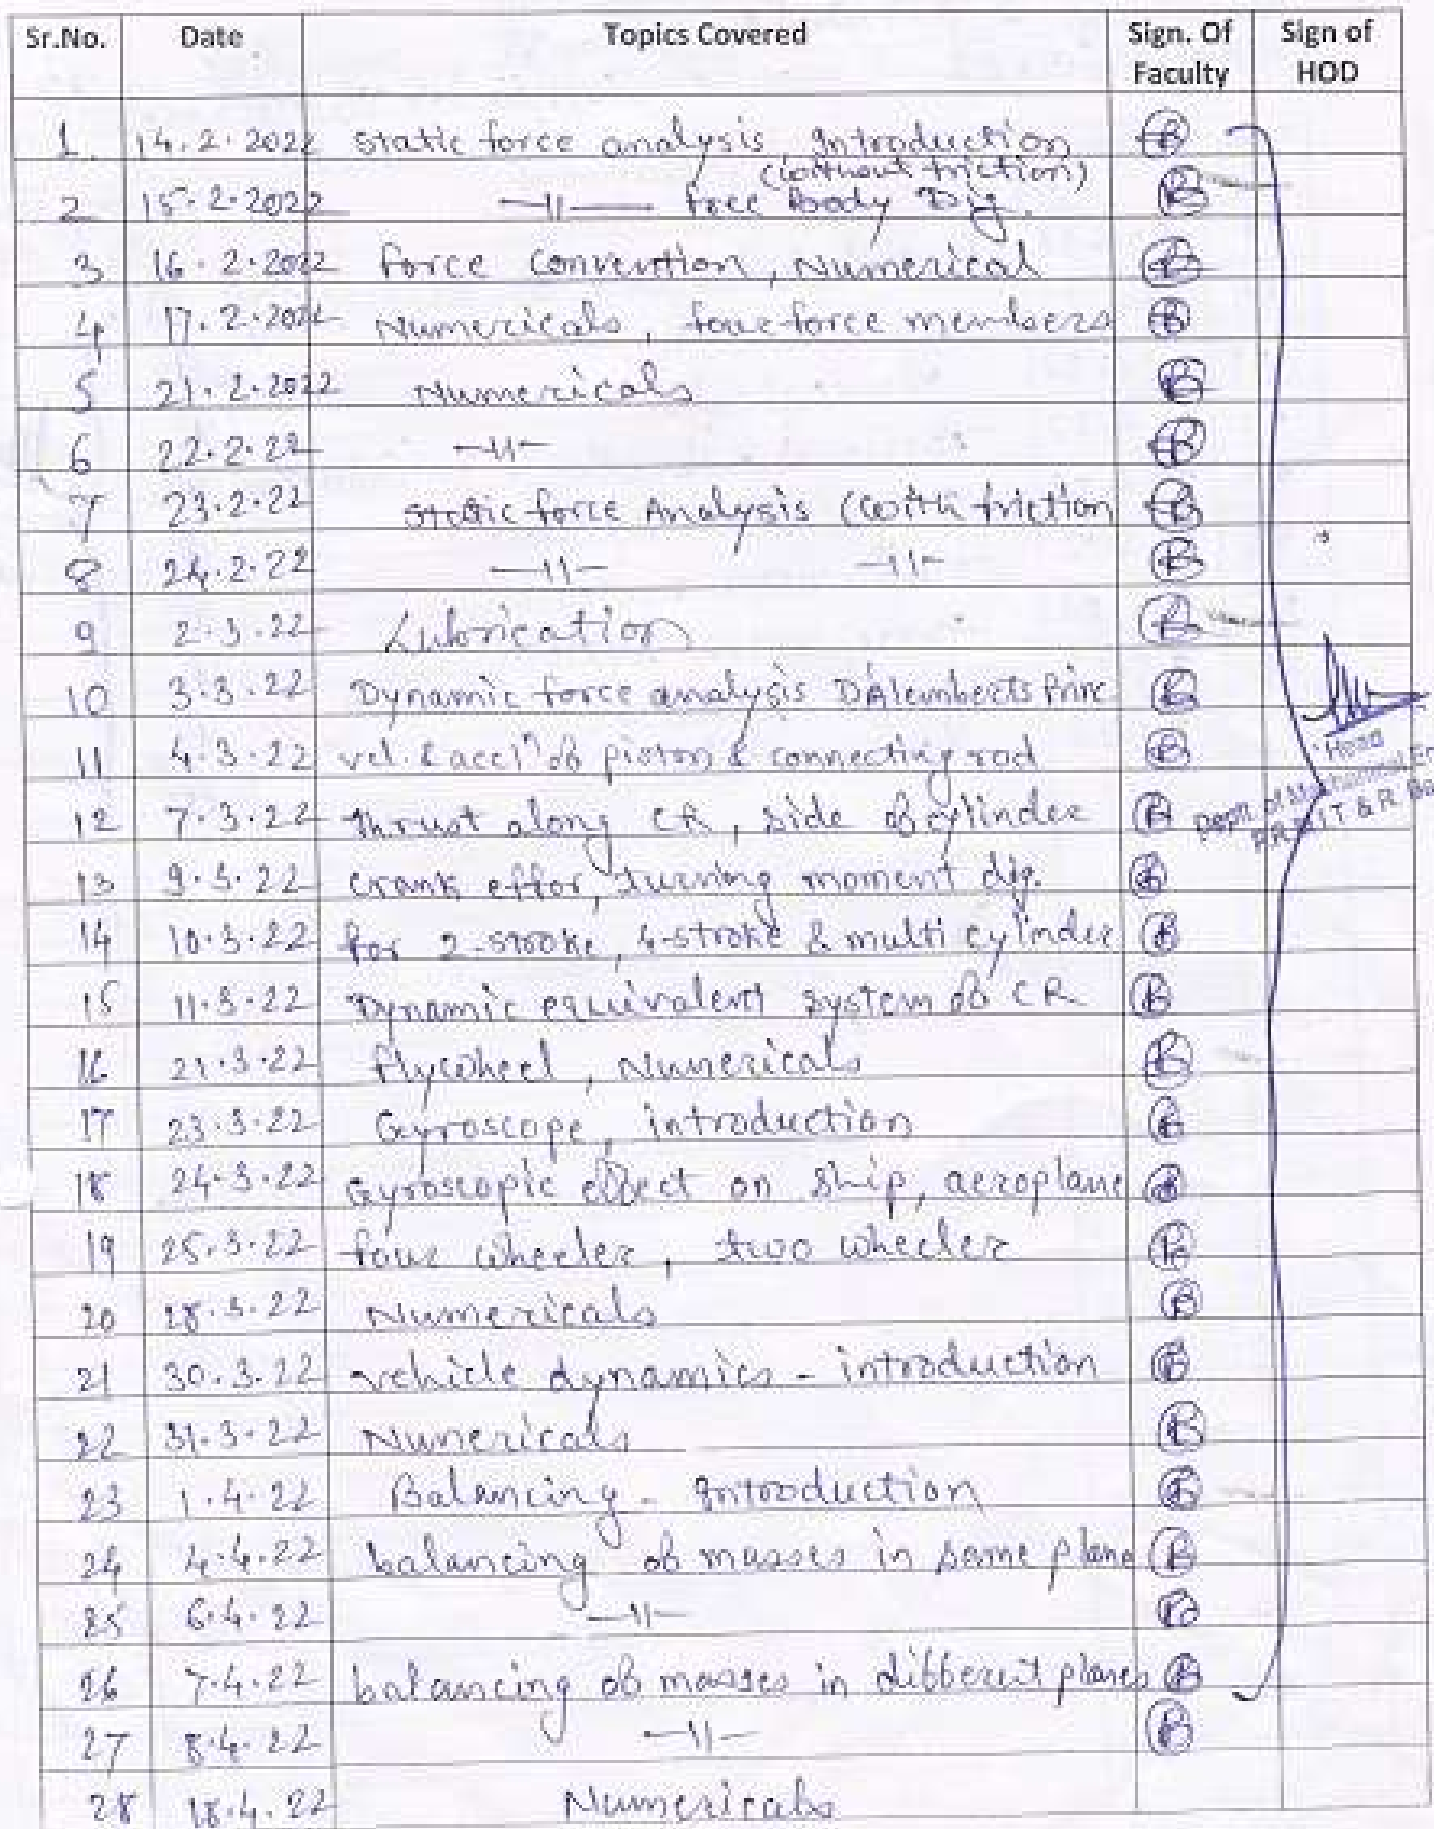 Sr.No. Date Topics Covered Sign. Of Faculty Sign of HOD
1. 14.2.2022 Static force analysis Introduction
(without friction)
2 15-2-2022 —11— Free Body Dig.
3 16-2-2022 Force Convention, Numerical
4 17.2.2022 Numericals, four force members
5 21.2.2022 Numericals
6 22.2.22 —11—
7 23.2.22 Static force Analysis (with friction
8 24.2.22 —11— —11—
9 2.3.22 Lubrication
10 3.3.22 Dynamic force analysis D'Alemberts Princ
11 4.3.22 vel. & accln of piston & connecting rod
Head
12 7.3.22 thrust along CR, side of cylinder
Dept. of Mechanical
13 9.3.22 crank effor, turning moment dig.
14 10.3.22 for 2-stroke, 4-stroke & multi cylinder
15 11.3.22 Dynamic equivalent system of CR
16 21.3.22 Flywheel, Numericals
17 23.3.22 Gyroscope, introduction
18 24.3.22 Gyroscopic effect on ship, aeroplane
19 25.3.22 four wheeler, two wheeler
20 28.3.22 Numericals
21 30.3.22 vehicle dynamics - introduction
22 31.3.22 Numericals
23 1.4.22 Balancing - Introduction
24 4.4.22 balancing of masses in same plane
25 6.4.22 —11—
26 7.4.22 balancing of masses in different planes
27 8.4.22 —11—
28 18.4.22 Numericals